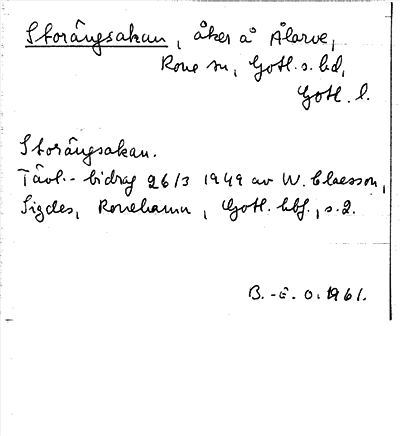 Storängsakan, åker å Ålarve,
Rone sn, Gotl. s. hd,
Gotl. l.
Storängsakan.
Tävl.-bidrag 26/3 1949 av W. Claesson,
Sigdes, Ronehamn, Gotl. hbf., s. 2.
B.-E. O. 1961.